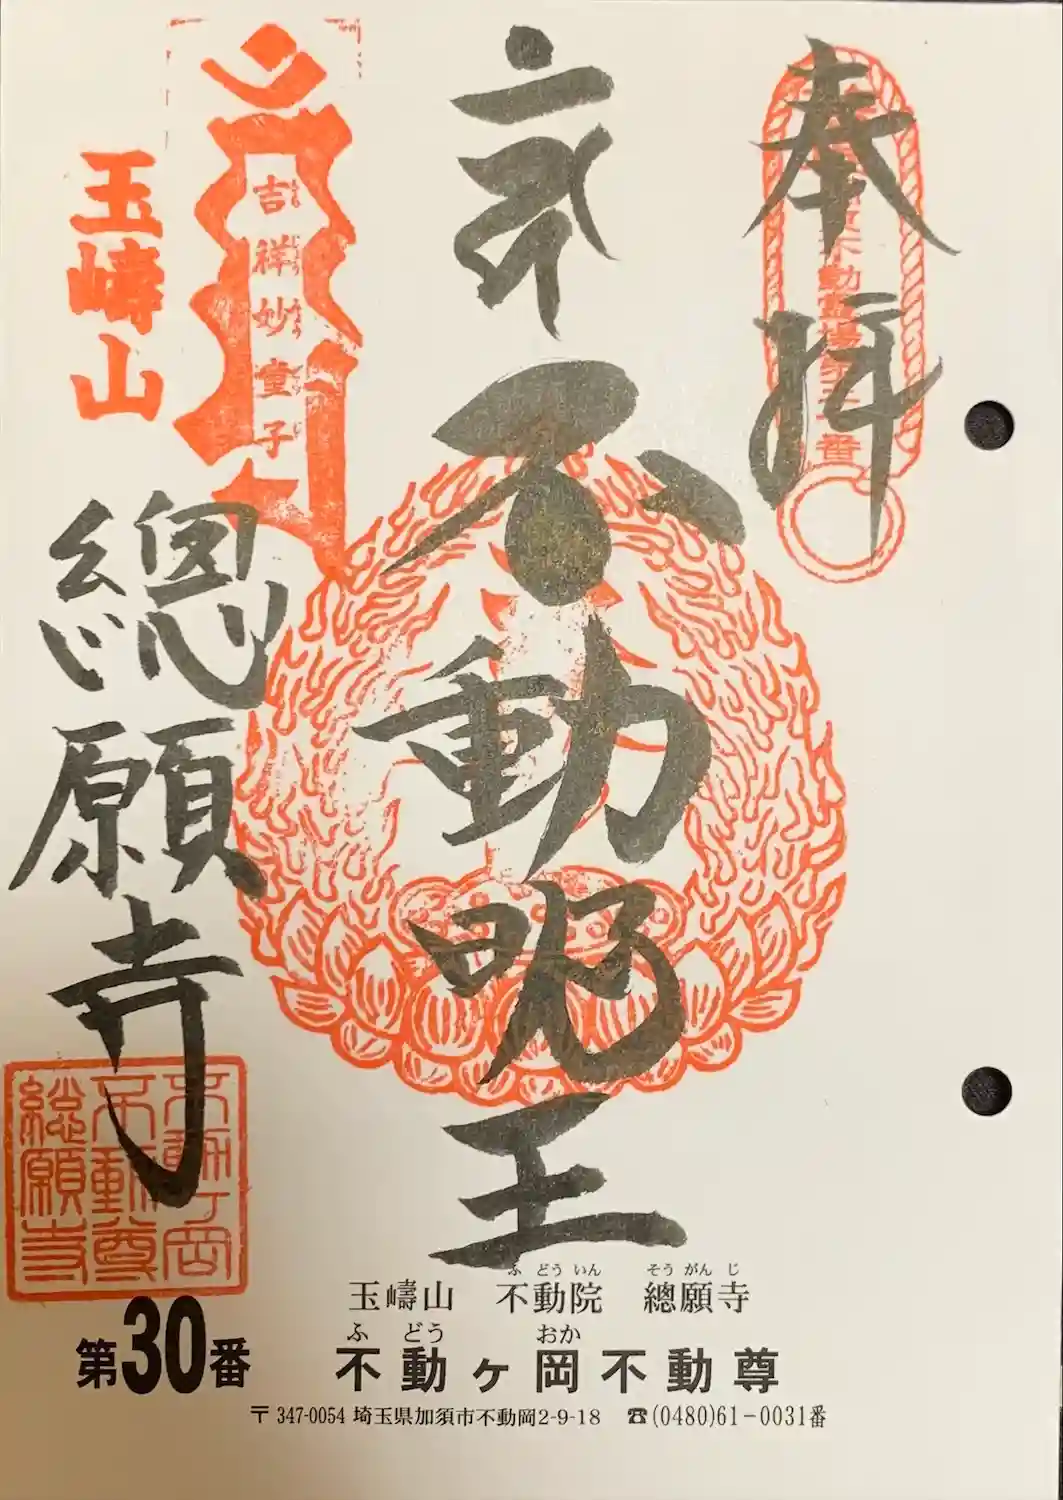 奉拝
不動明王
吉祥妙童子
玉嶹山
總願寺
不動ヶ岡
不動尊
総願寺
玉嶹山 不動院 總願寺
ふどういん そうがんじ
不動ヶ岡不動尊
ふどう おか
第30番
〒347-0054 埼玉県加須市不動岡2-9-18 ☎(0480)61-0031番